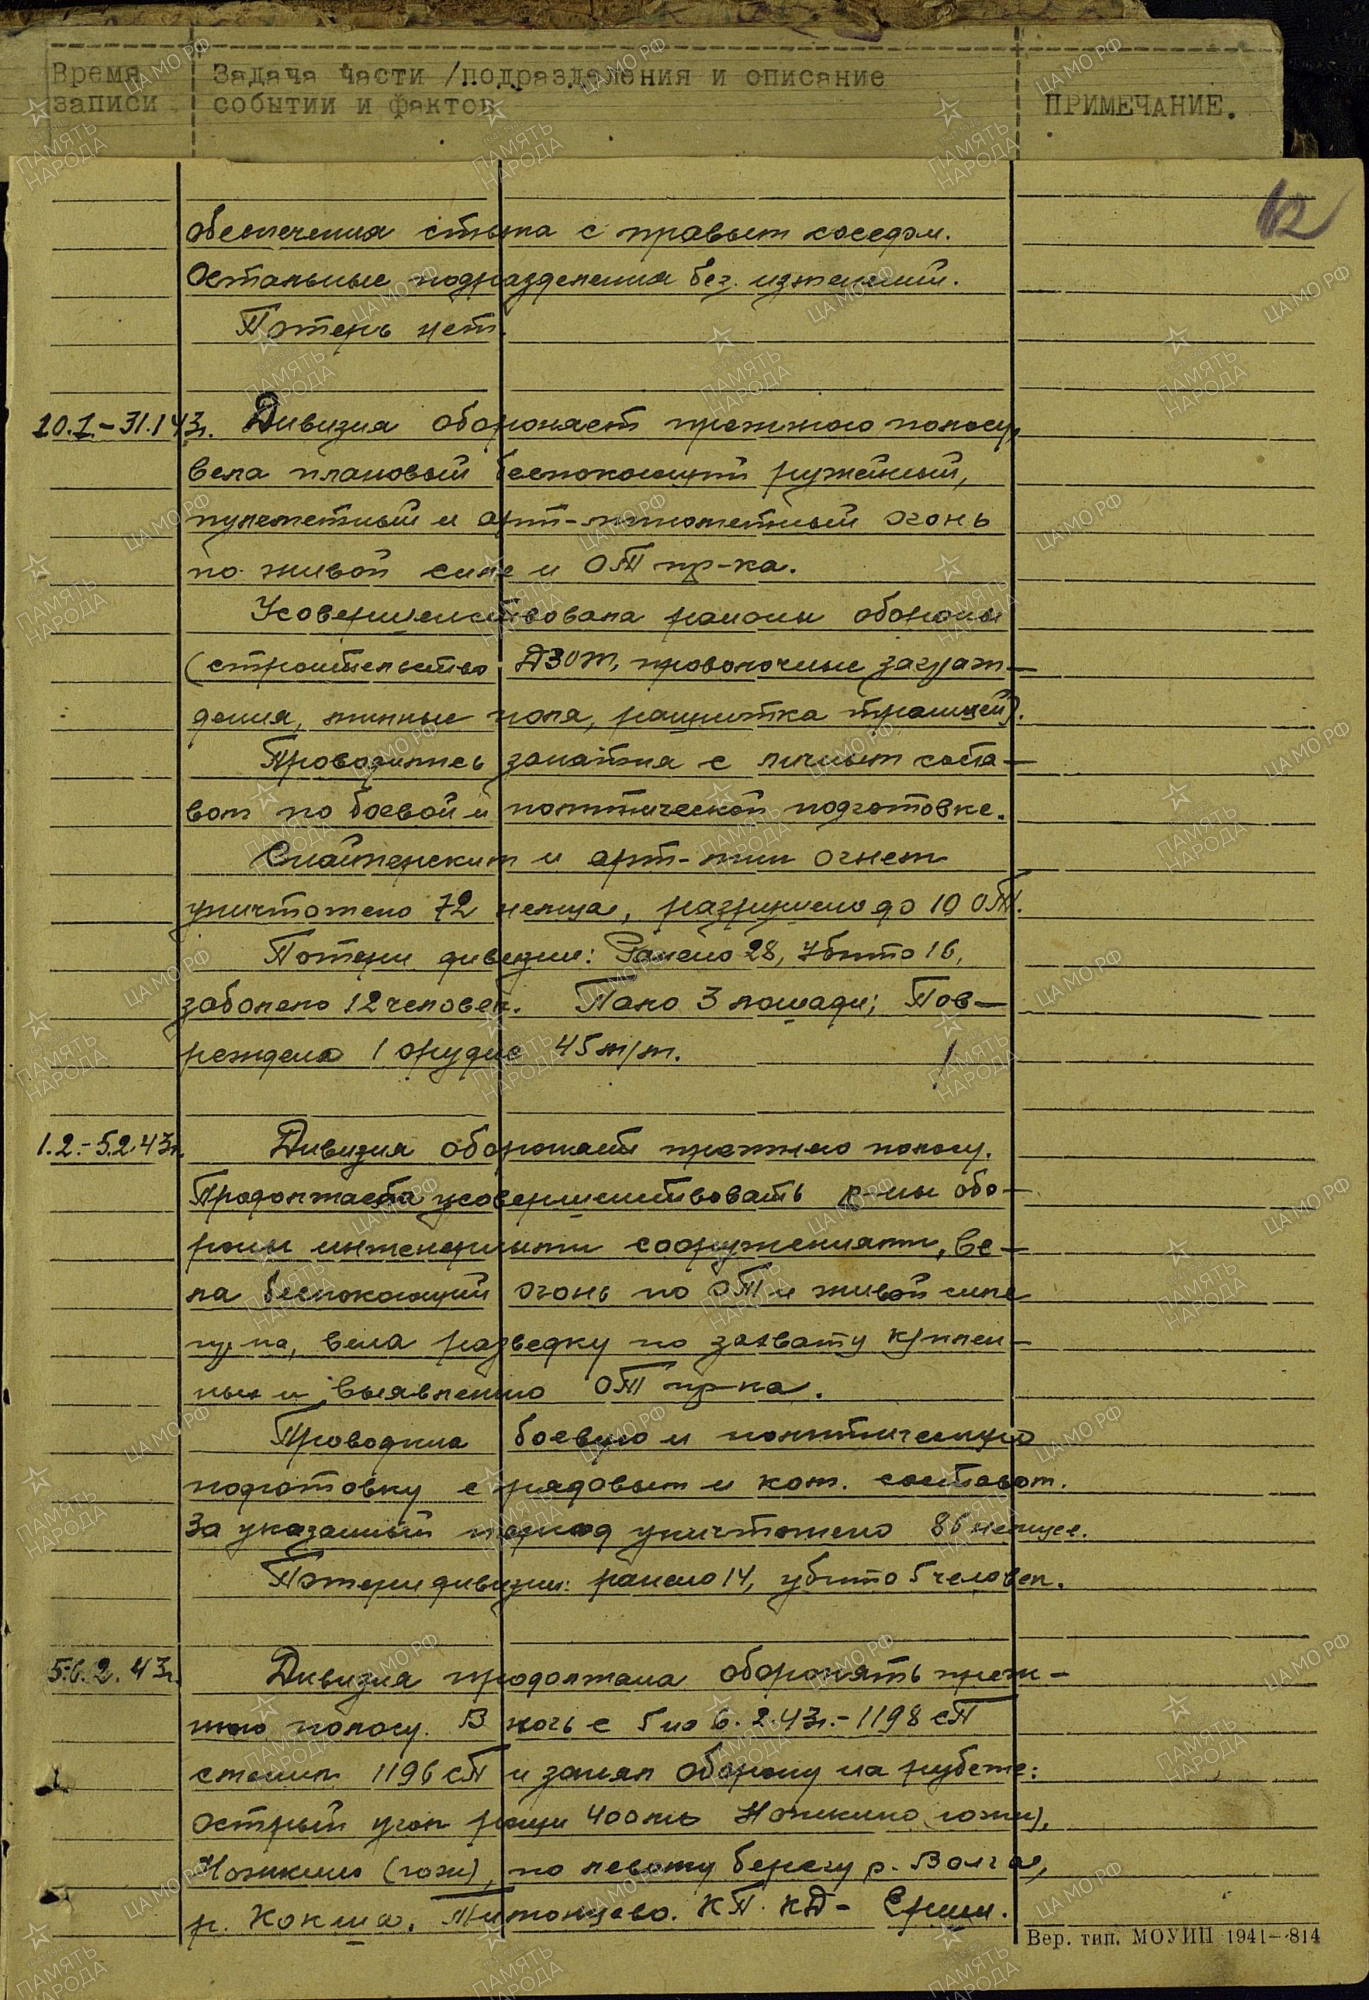 Время Задача части /подразделения и описание
записи событий и фактов ПРИМЕЧАНИЕ.
12
обеспечения стыка с правым соседом.
Остальные подразделения без изменений.
Потерь нет.
10.1-31.1 43г. Дивизия обороняет прежнюю полосу,
вела плановый беспокоющий ружейный,
пулеметный и арт-минометный огонь
по живой силе и ОТ пр-ка.
Усовершенствовала районы обороны
(строительство ДЗОТ, проволочные заграж-
дения, минные поля, расчистка траншей).
Проводились занятия с личным соста-
вом по боевой и политической подготовке.
Снайперским и арт-мин огнем
уничтожено 72 немца, разрушено до 10 ОТ.
Потери дивизии: Ранено 28, Убито 16,
заболело 12 человек. Пало 3 лошади; Пов-
реждено 1 орудие 45 м/м.
1.2.-5.2.43г. Дивизия обороняет прежнюю полосу.
Продолжала усовершенствовать р-ны обо-
роны инженерными сооружениями, ве-
ла беспокоющий огонь по ОТ и живой силе
пр-ка, вела разведку по захвату к/плен-
ных и выявлению ОТ пр-ка.
Проводила боевую и политическую
подготовку с рядовым и ком. составом.
За указанный период уничтожено 86 немцев.
Потери дивизии: ранено 14, убито 5 человек.
5-6.2.43г. Дивизия продолжала оборонять преж-
нюю полосу. В ночь с 5 на 6.2.43г.-1198 сП
сменил 1196 сП и занял оборону на рубеже:
Острый угол рощи 400 мтр Ножкино (южн),
Ножкино (южн), по левому берегу р. Волга,
р. Кокша. КП КД- Ершы.
Вер. тип. МОУИП 1941-814
ПАМЯТЬ НАРОДА
ЦАМО РФ